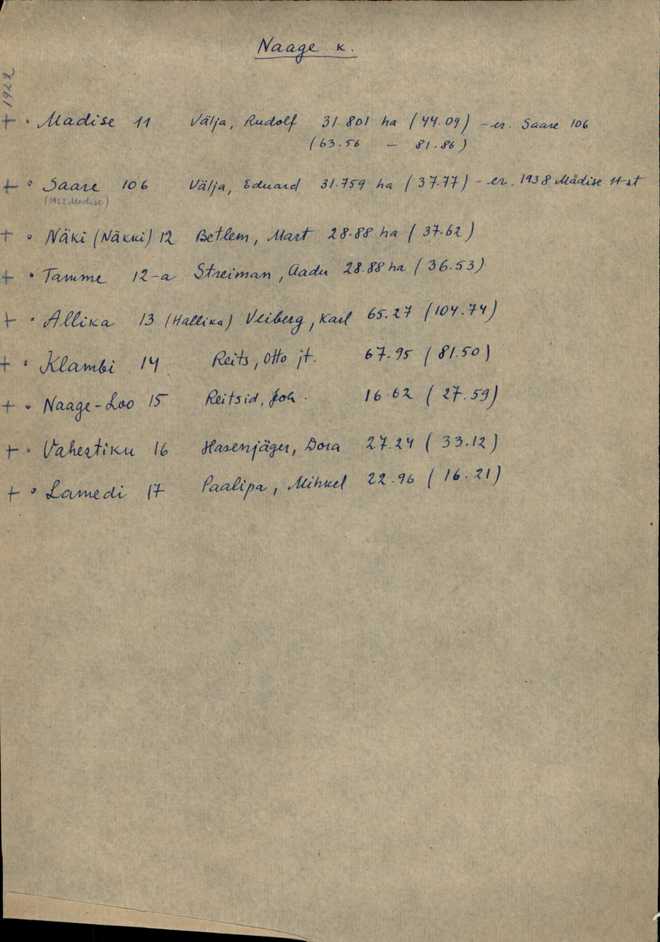 Naage k.
1922
+ • Madise 11 Välja, Rudolf 31.801 ha (44.09) - er. Saare 106
(63.56 - 81.86)
+ • Saare 106 Välja, Eduard 31.759 ha (37.77) - er. 1938 Madise 11-st
(1922 Madise)
+ • Näki (Näkki) 12 Betlem, Mart 28.88 ha (37.62)
+ • Tamme 12-a Streiman, Aadu 28.88 ha (36.53)
+ • Allika 13 (Hallika) Veiberg, Karl 65.27 (104.74)
+ • Klambi 14 Reits, Otto jt. 67.95 (81.50)
+ • Naage-Loo 15 Reitsid, Joh. 16.62 (27.59)
+ • Vahertiku 16 Hasenjäger, Dora 27.24 (33.12)
+ • Lamedi 17 Paalipa, Mihkel 22.96 (16.21)